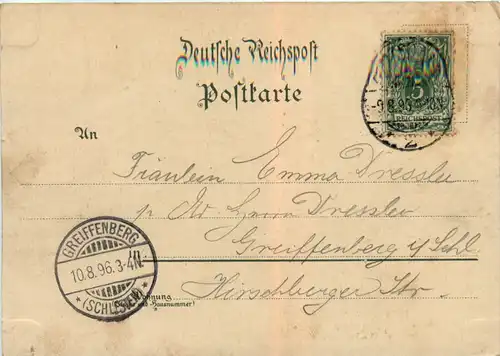 Deutsche Reichspost
Postkarte
5
REICHSPOST
9.8.96
2
An
Fräulein Emma Dressler
p. Ad. Herrn Dressler
Greiffenberg i/Schl.
Hirschberger Str.
GREIFFENBERG
10.8.96.3-4N.
(SCHLESIEN)
Wohnung
(Straße und Hausnummer)